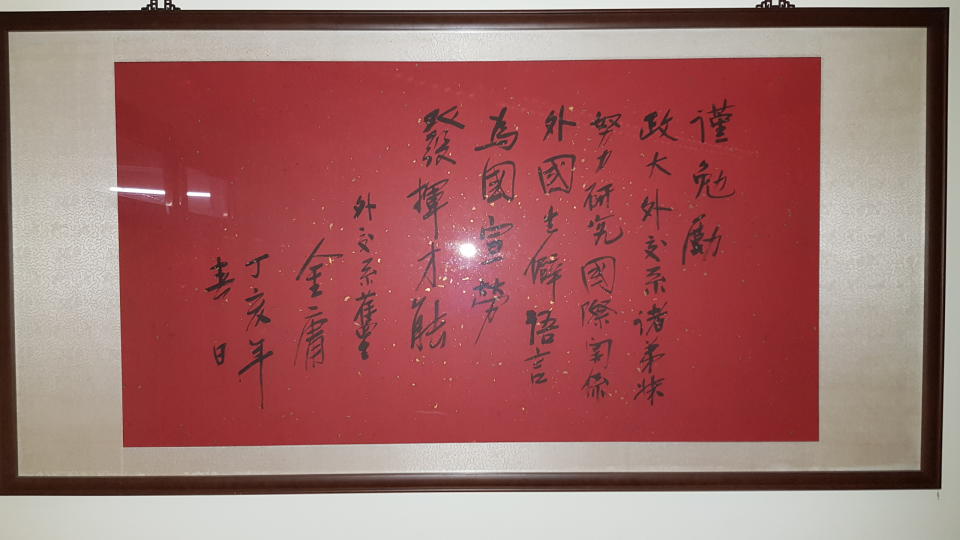 謹勉勵
政大外交系諸弟妹
努力研究國際関係
外國生僻語言
為國宣勞
發揮才能
外交系舊生
金庸
丁亥年
春日